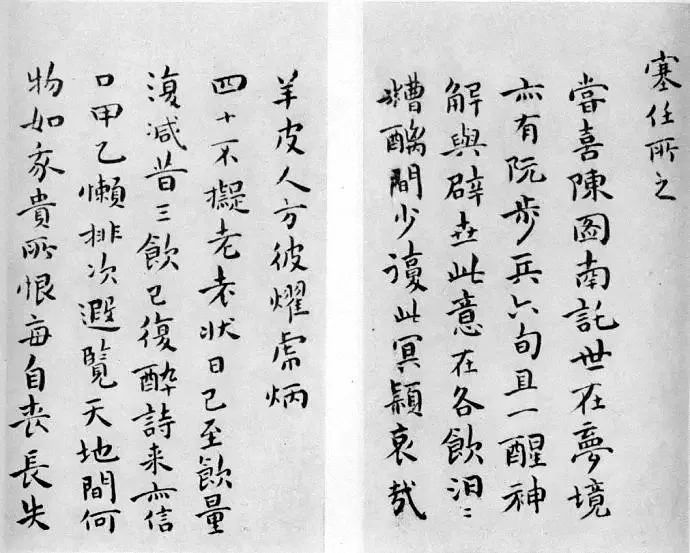 塞任所之
嘗喜陳圖南託世在夢境
亦有阮步兵六旬且一醒神
解與辟世此意在各飲汩〻
糟醨間少此冥穎哀哉
羊皮人方彼燿虎炳
四十不擬老老状日已至飲量
復减昔三飲已復醉詩来亦信
口甲乙懶排次遐覽天地間何
物如我貴所恨每自喪長失